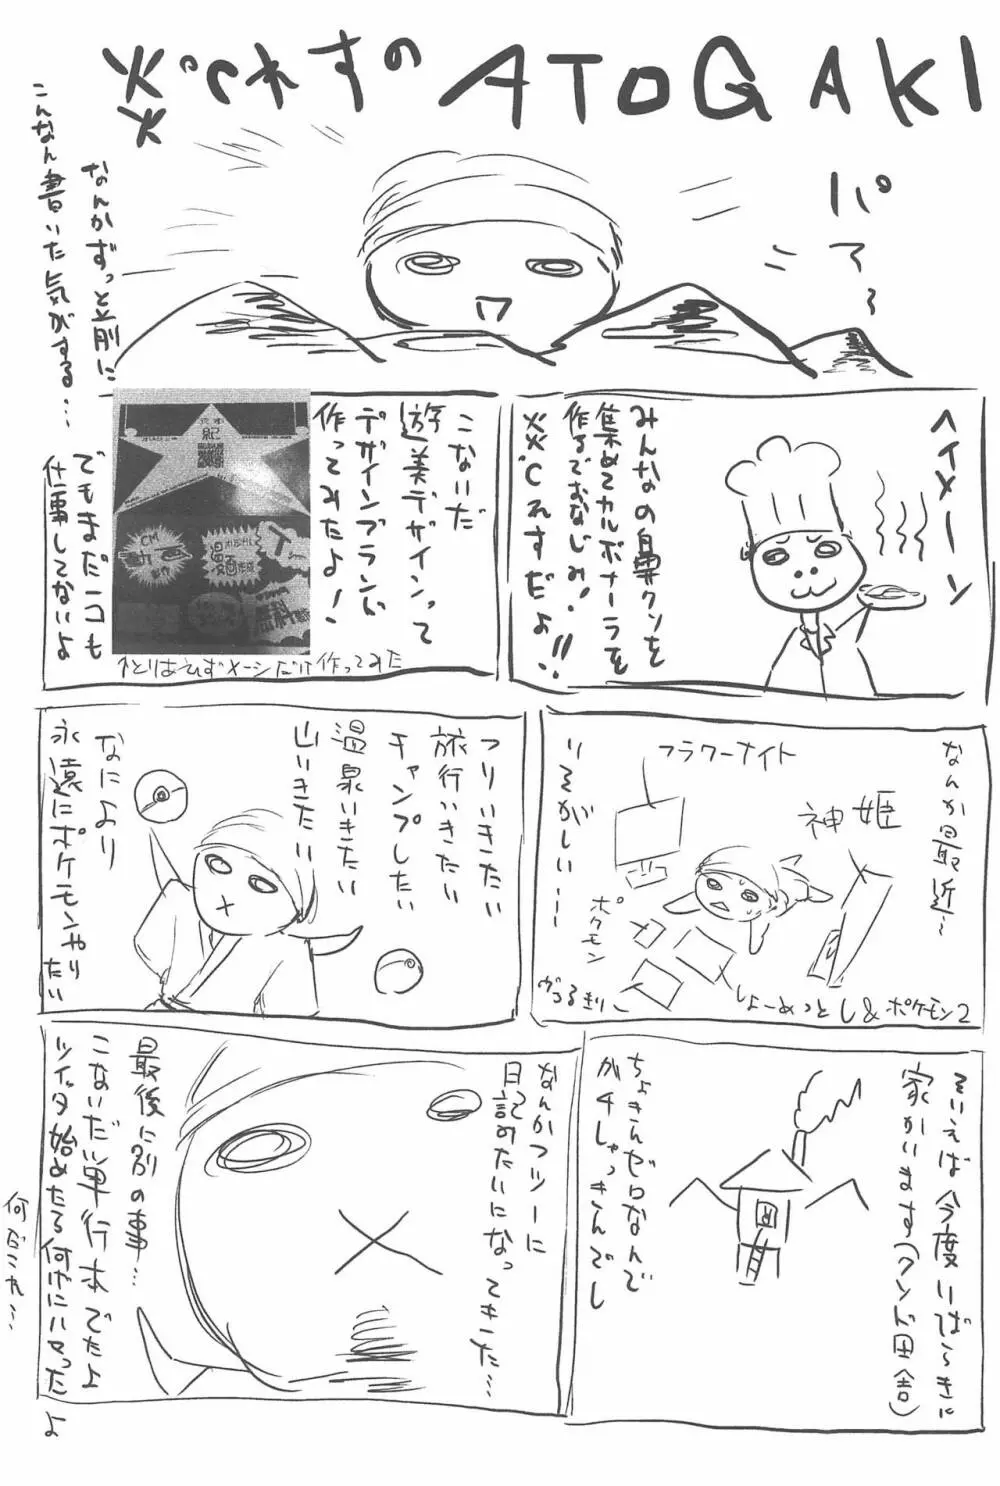 れすのATOGAKI
パァ〜
なんかずっと前に
こんなん書いた気がする…
ヘイメーン
みんなの鼻クソを
集めてカルボナーラを
作るでおなじみ!
れすだよ!!
こないだ
遊美デザインって
デザインブランド
作ってみたよ!
↑とりあえずメーシだけ作ってみた
でもまだ一コも
仕事してないよ
なんか最近〜
いそがしい…
フラワーナイト
神姫
ポケモン
しょーめっとし&ポケモン2
つりいきたい
旅行いきたい
キャンプしたい
温泉いきたい
山いきたい
なにより
永遠にポケモンやりたい
そいえば今度いばらきに
家かいます(クソド田舎)
ちょきんゼロなんで
ガチしゃっきんでし
なんかフツーに
日記みたいになってきた…
最後に別の事…
こないだ単行本でたよ
ツイッタ始めたる何かにハマった
よ
何だこれ…